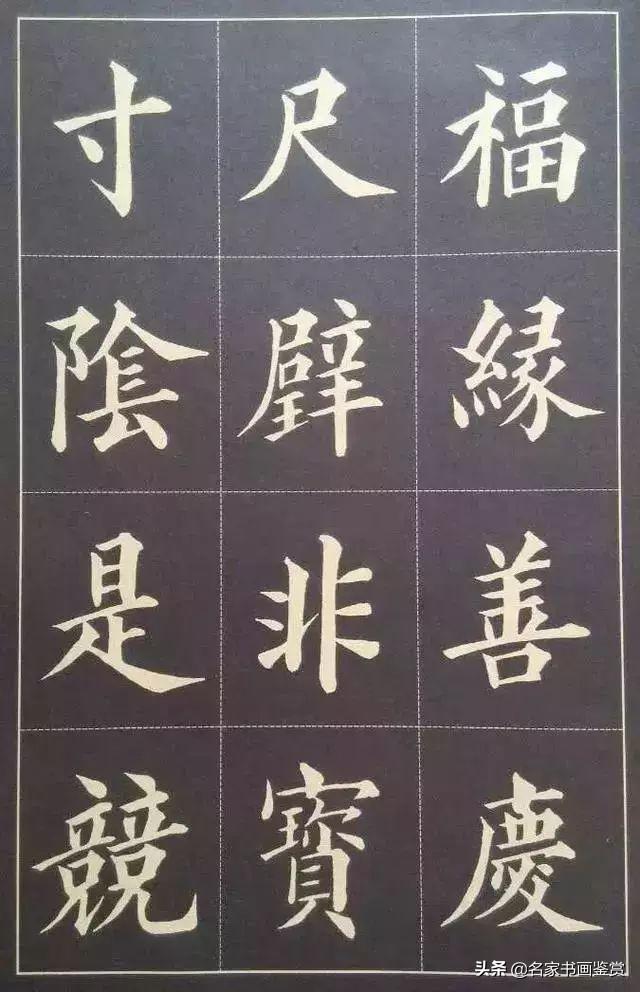 福緣善慶
尺璧非寶
寸陰是競
头条 @名家书画鉴赏